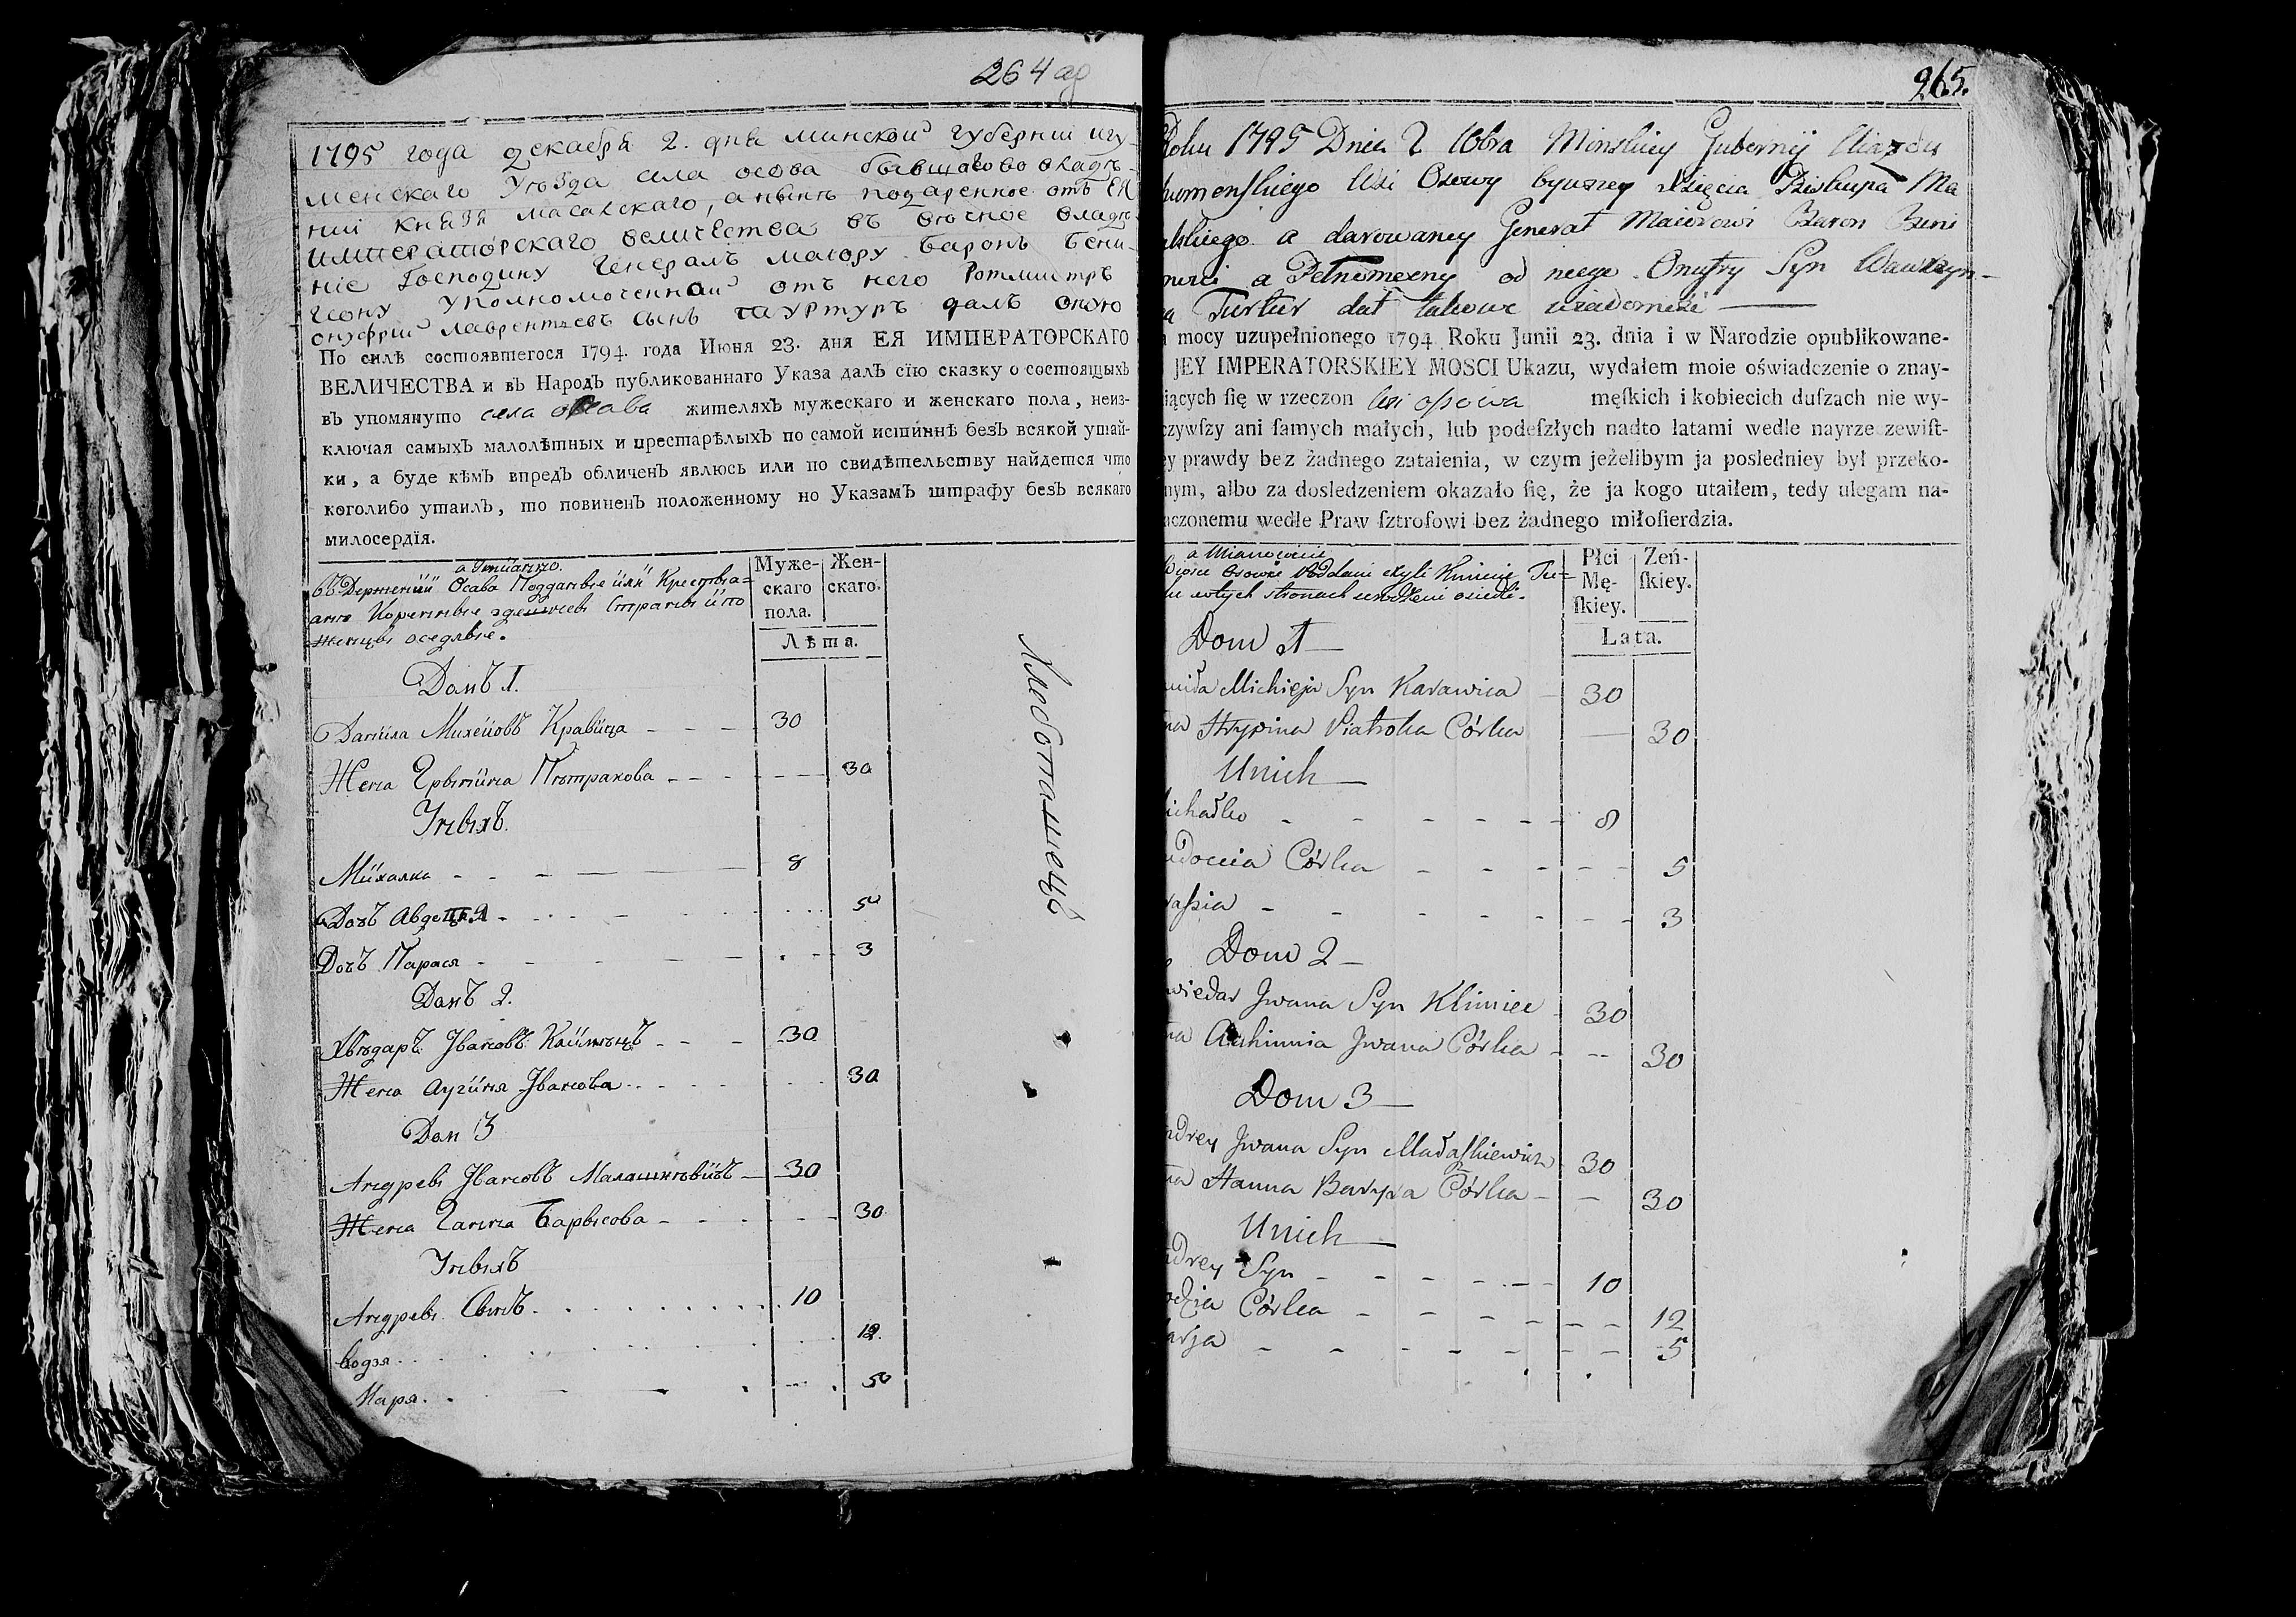 264 об
1795 года декабря 2. дня минской губерніи игу-
менскаго Уѣзда села осова бывшаго во владѣ-
ніи Князя масалскаго, а нынѣ подаренное отъ ЕЯ
императорскаго величества въ вѣчное владѣ-
ніе Господину Генералъ маіору баронъ Бени-
гсону уполномоченной отъ него Ротмистръ
онуфрій лаврентьевъ сынъ туртуръ далъ оною
По силѣ состоявшегося 1794. года Июня 23. дня ЕЯ ИМПЕРАТОРСКАГО
ВЕЛИЧЕСТВА и въ Народъ публикованнаго Указа далъ сїю сказку о состоящыхъ
въ упомянуто села осава жителяхъ мужескаго и женскаго пола, неиз-
ключая самыхъ малолѣтных и престарѣлыхъ по самой истиннѣ безъ всякой утай-
ки, а буде кѣмъ впредъ обличенъ явлюсь или по свидѣтельству найдется что
коголибо утаилъ, то повиненъ положенному по Указамъ штрафу безъ всякаго
милосердїя.
а Имянно.
въ Деревни Осава Подданые или Крестья-
ане Коренные здешнiеві Страны и по
женцы оседлые.
Муже-
скаго
пола.
Жен-
скаго.
Лѣта.
Хлеботашецъ
Домъ 1.
Данила Михеiовъ Кравица 30
Жена Грыпина Пѣтракова 30
Уныхъ.
Михалка 8
Дочъ Авдоцья 5
Дочъ Парася 3
Домъ 2.
Хвѣдаръ Ивановъ Клiмѣцъ 30
Жена Аугiня Иванова 30
Дом 3
Андрей Ивановъ Малашкѣвичъ 30
Жена Ганна Барысова 30
Уныхъ
Андрей Сынъ 10
Водзя 12
Маря 5
265.
Roku 1795 Dnia 2 10bra Minskiey Gubernij Uiazdu
humenskiego Wsi Osowy bywszey Xięcia Biskupa Ma
alskiego a darowaney Generał Maiorowi Baron Beni
a Pełnomocny od niego Onufry Syn Wawrzyn-
a Turtur dał takowe wiadomości
mocy uzupełnionego 1794 Roku Junii 23. dnia i w Narodzie opublikowane-
JEY IMPERATORSKIEY MOSCI Ukazu, wydałem moie oświadczenie o znay-
iących ſię w rzeczon Wsi Osowa męſkich i kobiecich duſzach nie wy-
czywſzy ani ſamych małych, lub podeſzłych nadto latami wedle nayrze zewiſt-
ey prawdy bez żadnego zataienia, w czym jeżelibym ja posledniey był przeko-
nym, albo za dosledzeniem okazało ſię, że ja kogo utaiłem, tedy ulegam na-
aczonemu wedle Praw ſztrofowi bez żadnego miłoſierdzia.
a Mianowicie
Wiosce Osowie Poddani czyli Kmiecie Tu-
w tych stronach urodzeni osiedli.
Płci
Mę-
ſkiey.
Zeń-
ſkiey.
Lata.
Dom 1
niła Michieja Syn Karawica 30
na Hrypina Piatroka Córka 30
Unich
ichałko 8
udoccia Córka 5
rasia 3
Dom 2
wiedar Jwana Syn Klimiec 30
na Auhinnia Jwana Córka 30
Dom 3
ndrey Jwana Syn Małaszkiewicz 30
na Hanna Barysa Córka 30
Unich
ndrey Syn 10
odzia Córka 12
arja 5